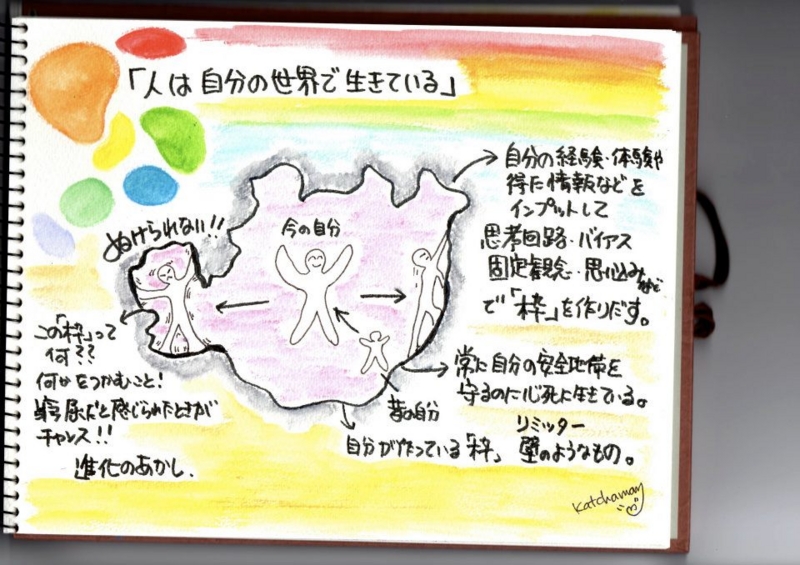 「人は自分の世界で生きている」
自分の経験・体験や
得た情報などを
インプットして
思考回路・バイアス
固定観念・思い込みなど
で「枠」を作りだす。
ぬけられない!!
今の自分
この「枠」って
何??
何かをつかむこと!
窮屈だと感じられたときが
チャンス!!
進化のあかし.
昔の自分
常に自分の安全地帯を
守るのに必死に生きている。
自分が作っている「枠」
リミッター
壁のようなもの。
katchaman